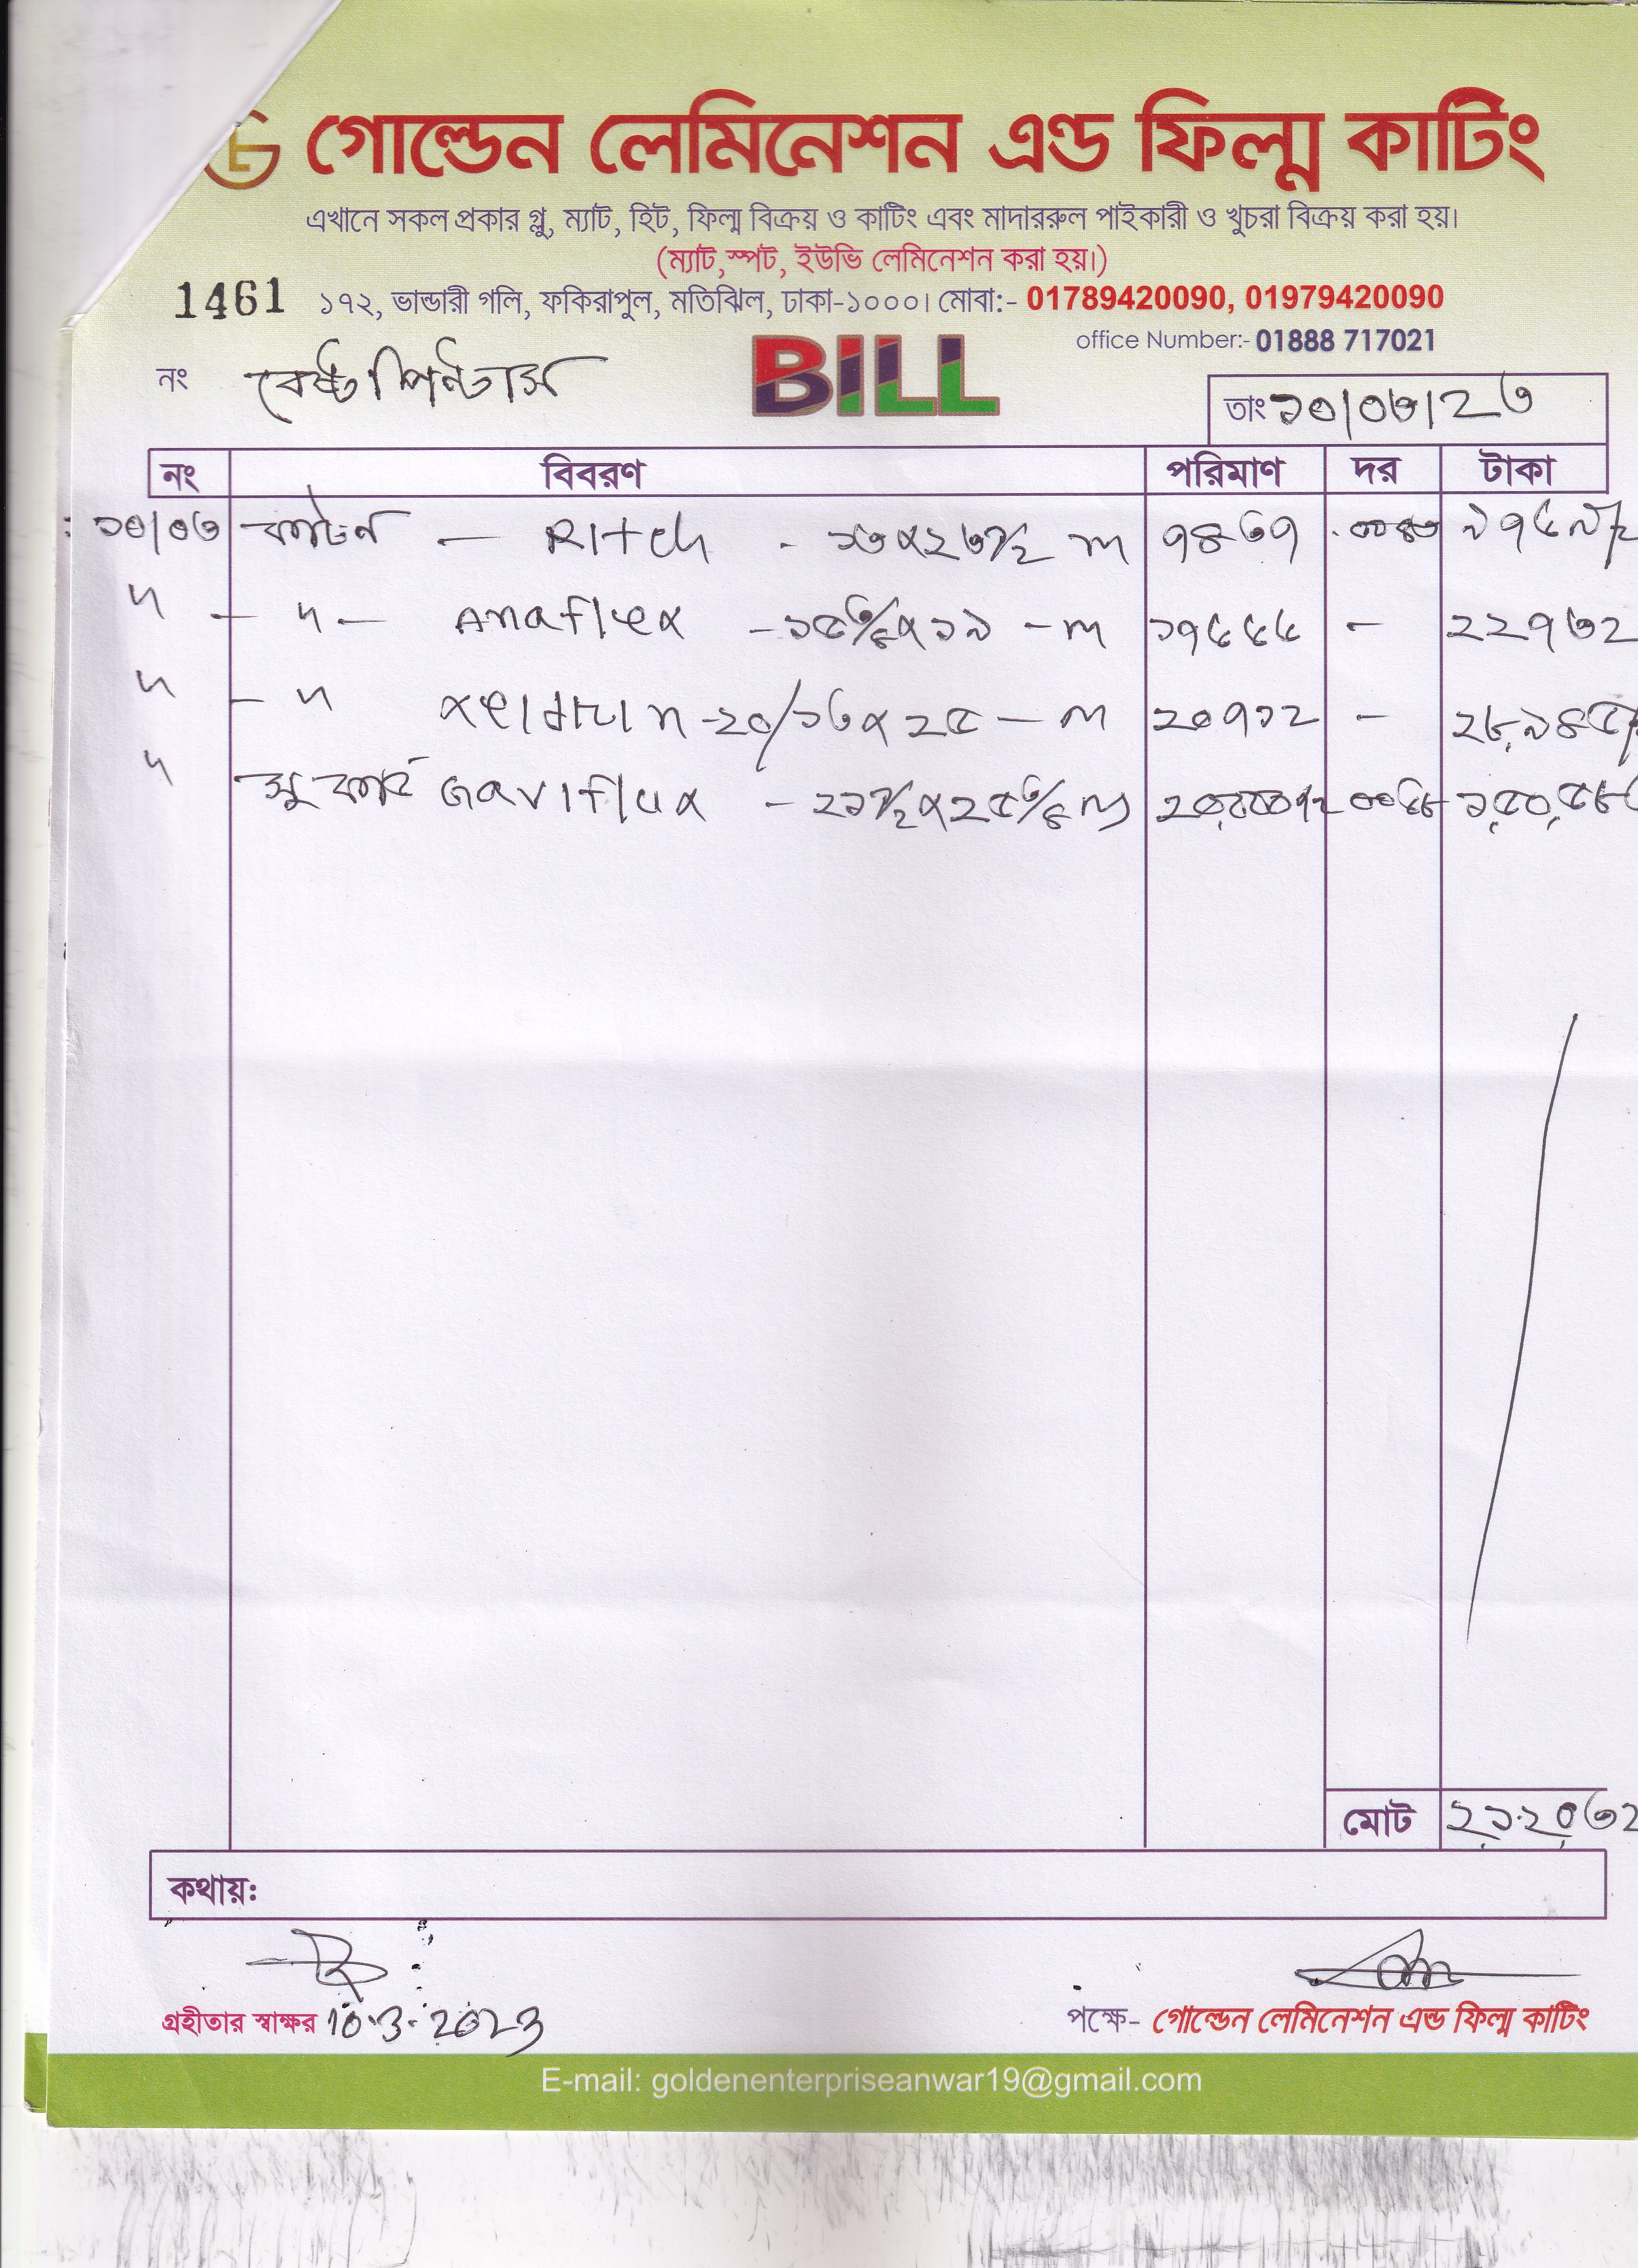 গোল্ডেন লেমিনেশন এণ্ড ফিল্ম কাটিং
এখানে সকল প্রকার গ্লু, ম্যাট, হিট, ফিল্ম বিক্রয় ও কাটিং এবং মাদাররুল পাইকারী ও খুচরা বিক্রয় করা হয়।
(ম্যাট,স্পট, ইউভি লেমিনেশন করা হয়।)
1461 ১৭২, ভান্ডারী গলি, ফকিরাপুল, মতিঝিল, ঢাকা-১০০০। মোবা:- 01789420090, 01979420090
office Number:- 01888 717021
নং বেষ্ট প্রিন্টার্স BILL তাং ১০/০৩/২৩
নং বিবরণ পরিমাণ দর টাকা
১০/০৩ কার্টন — Ritch - ১৩x২৩১/২ m ৭৪৩৭
" — " — Anaflex - ১৫৩/৪x১৯ - m ১৭৬৬৬ - ২২৭৩২
" - " ২০/১৬x২৫ — m ২০৭১২ -
" Gaviflux - ২১১/২x২৫৩/৪ m
মোট ২,১২,০৩২
কথায়:
গ্রহীতার স্বাক্ষর 10.3.2023
পক্ষে- গোল্ডেন লেমিনেশন এন্ড ফিল্ম কাটিং
E-mail: goldenenterpriseanwar19@gmail.com